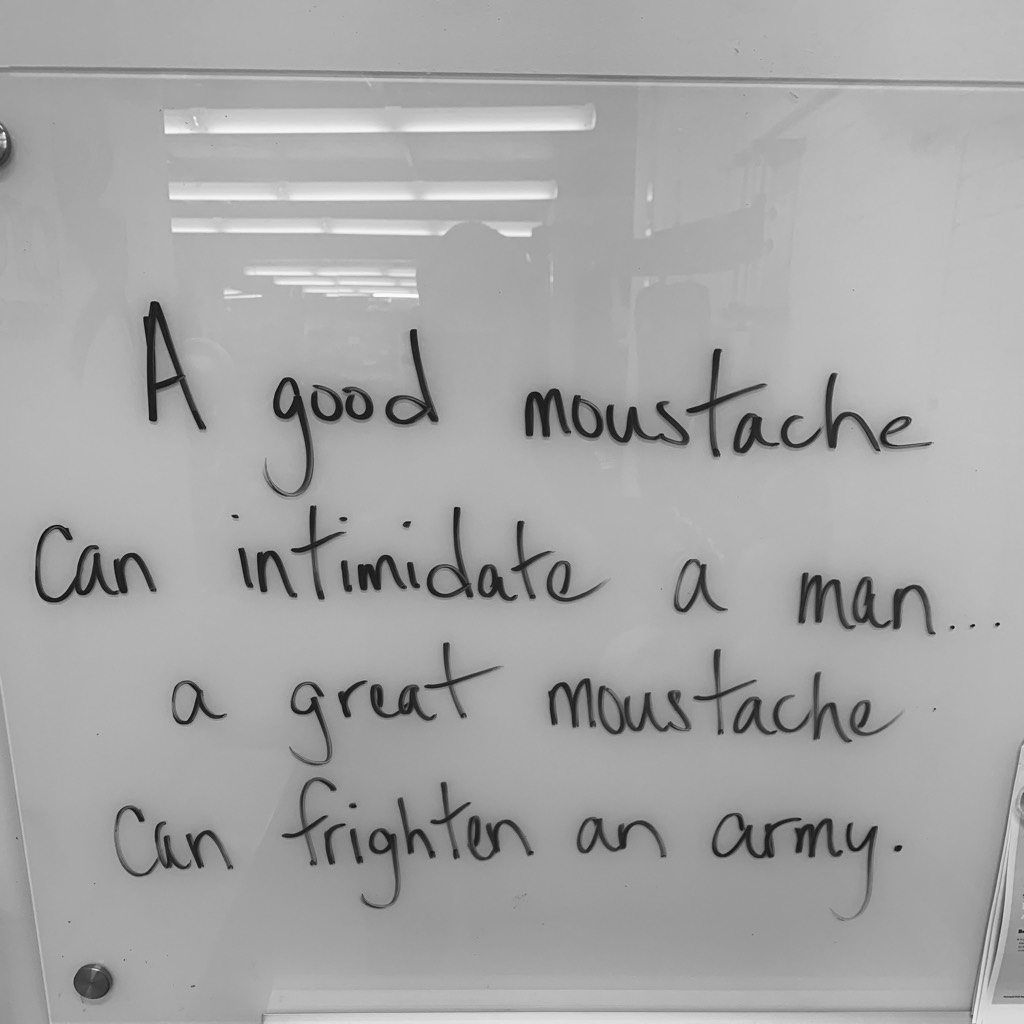 A good moustache
Can intimidate a man...
a great moustache
Can frighten an army.